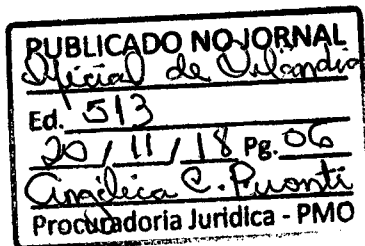 PUBLICADO NO JORNAL
Oficial de Orlândia
Ed. 513
20 / 11 / 18 Pg. 06
Angélica C.
Procuradoria Juridica - PMO